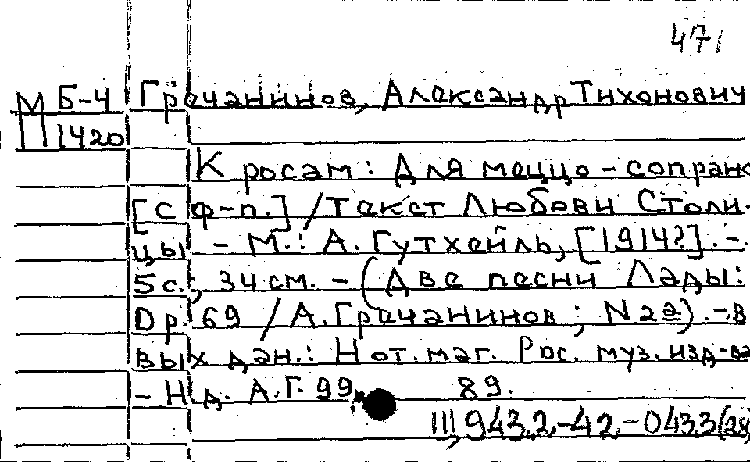 471
М Б-4 Гречанинов, Александр Тихонович
П 1420
К росам: Для меццо-сопрано
[с ф-п.] / Текст Любови Столи-
цы. - М.: А. Гутхейль, [1914?]. -
5 с.; 34 см. - (Две песни Лады:
Op. 69 / А. Гречанинов; N 2a). - В
вых. дан.: Нот. маг. Рос. муз. изд-ва
- Н. д. А. Г. 99 89.
943.2-42.-043.3(28